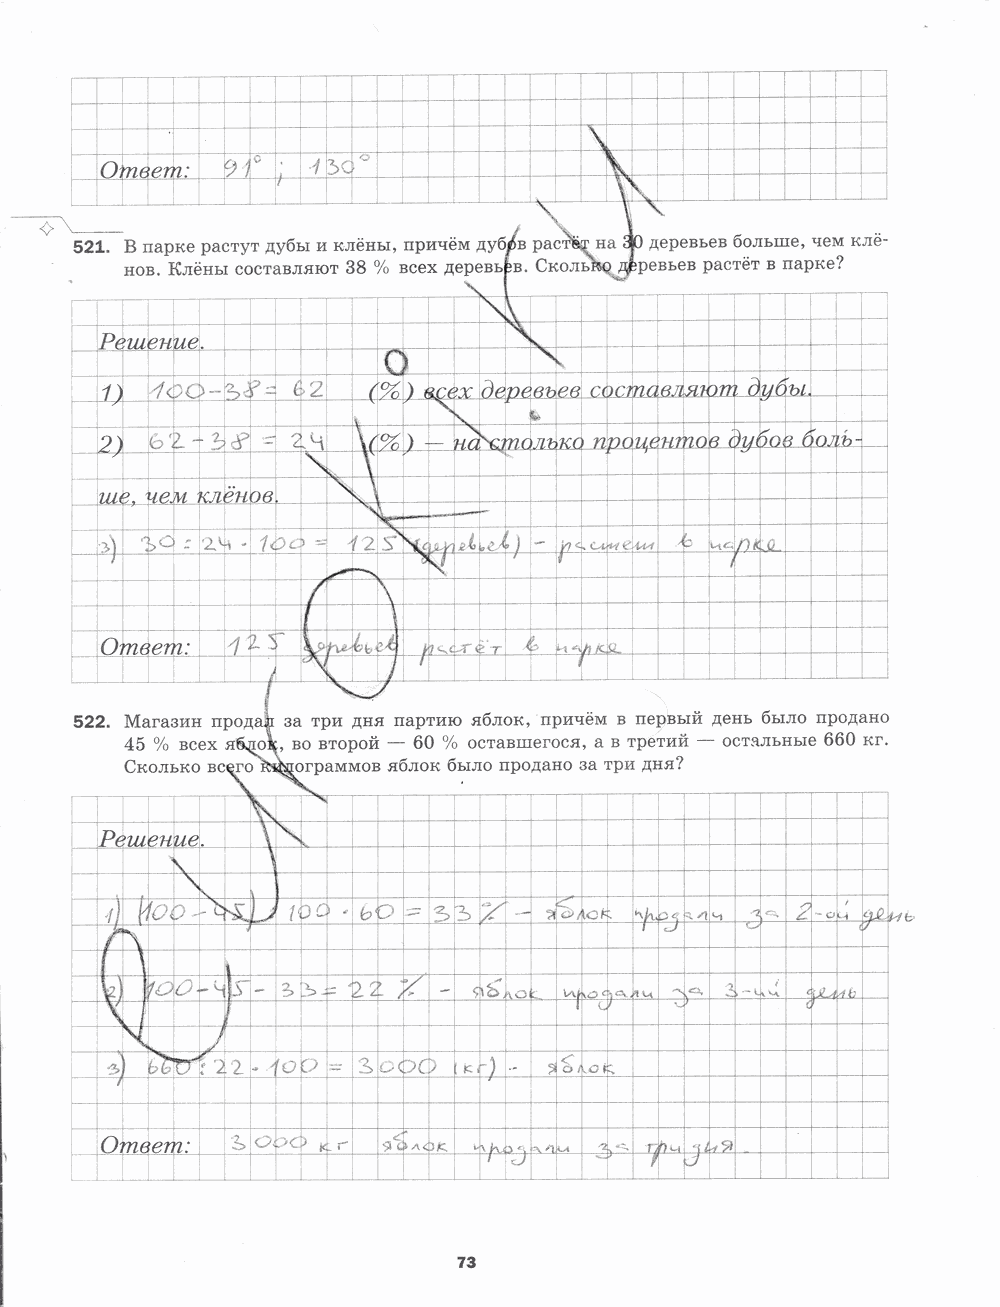 Ответ: 91° ; 130°
521. В парке растут дубы и клёны, причём дубов растёт на 30 деревьев больше, чем клё-
нов. Клёны составляют 38 % всех деревьев. Сколько деревьев растёт в парке?
Решение.
1) 100-38= 62 (%) всех деревьев составляют дубы.
2) 62-38 = 24 (%) — на столько процентов дубов боль-
ше, чем клёнов.
3) 30:24·100= 125 (деревьев) - растет в парке
Ответ: 125 деревьев растёт в парке
522. Магазин продал за три дня партию яблок, причём в первый день было продано
45 % всех яблок, во второй — 60 % оставшегося, а в третий — остальные 660 кг.
Сколько всего килограммов яблок было продано за три дня?
Решение.
1) (100-45) : 100·60=33% - яблок продали за 2-ой день
2) 100-45-33=22% - яблок продали за 3-ий день
3) 660:22·100=3000 (кг) - яблок
Ответ: 3000 кг яблок продали за три дня.
73